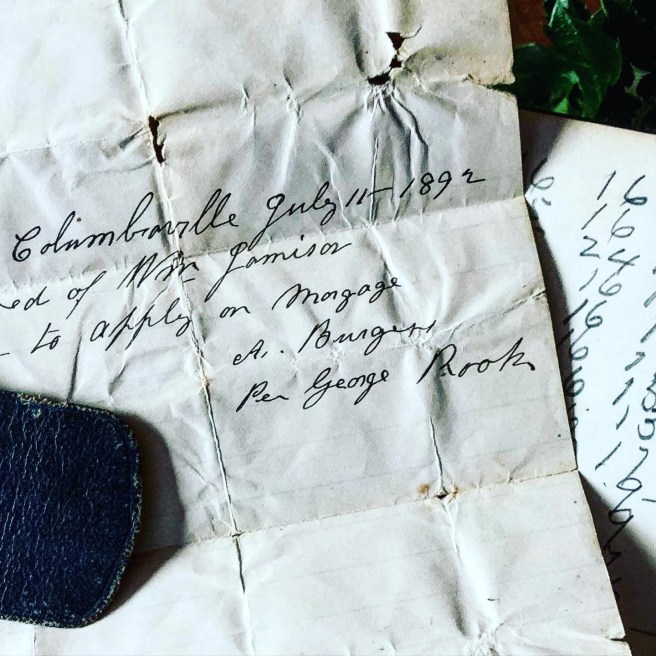 Columbiaville July 11 - 1892
ed of Wm Jamison
- to apply on Morgage
A. Burgess
Per George Rook
16
16
24
16